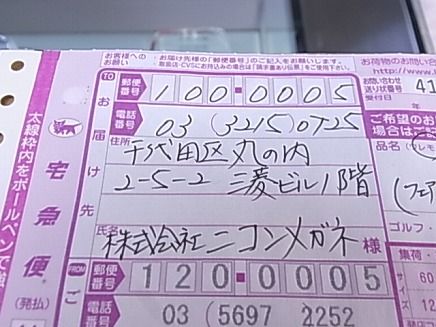 お客様への
お願い
お届け先様の「郵便番号」のご記入をお願いします。
取扱店・CVSにお持込みの場合は「請求書あり伝票」をご使用下さい。
お荷物のお問い
http://www.
お問い合わせ
送り状番号
41
受付日
年
TO
お届け先
郵便番号
100-0005
電話番号
03 (3215) 0725
住所
千代田区丸の内
2-5-2 三菱ビル1階
氏名
株式会社ニコンメガネ
様
FROM
ご
郵便番号
120-0005
電話番号
03 (5697 2252
太線枠内をボールペンで強
宅急便
(発払)
ご希望のお
場合はご
品名
(フェ
ゴルフ・
集荷・
サイズ
60
12